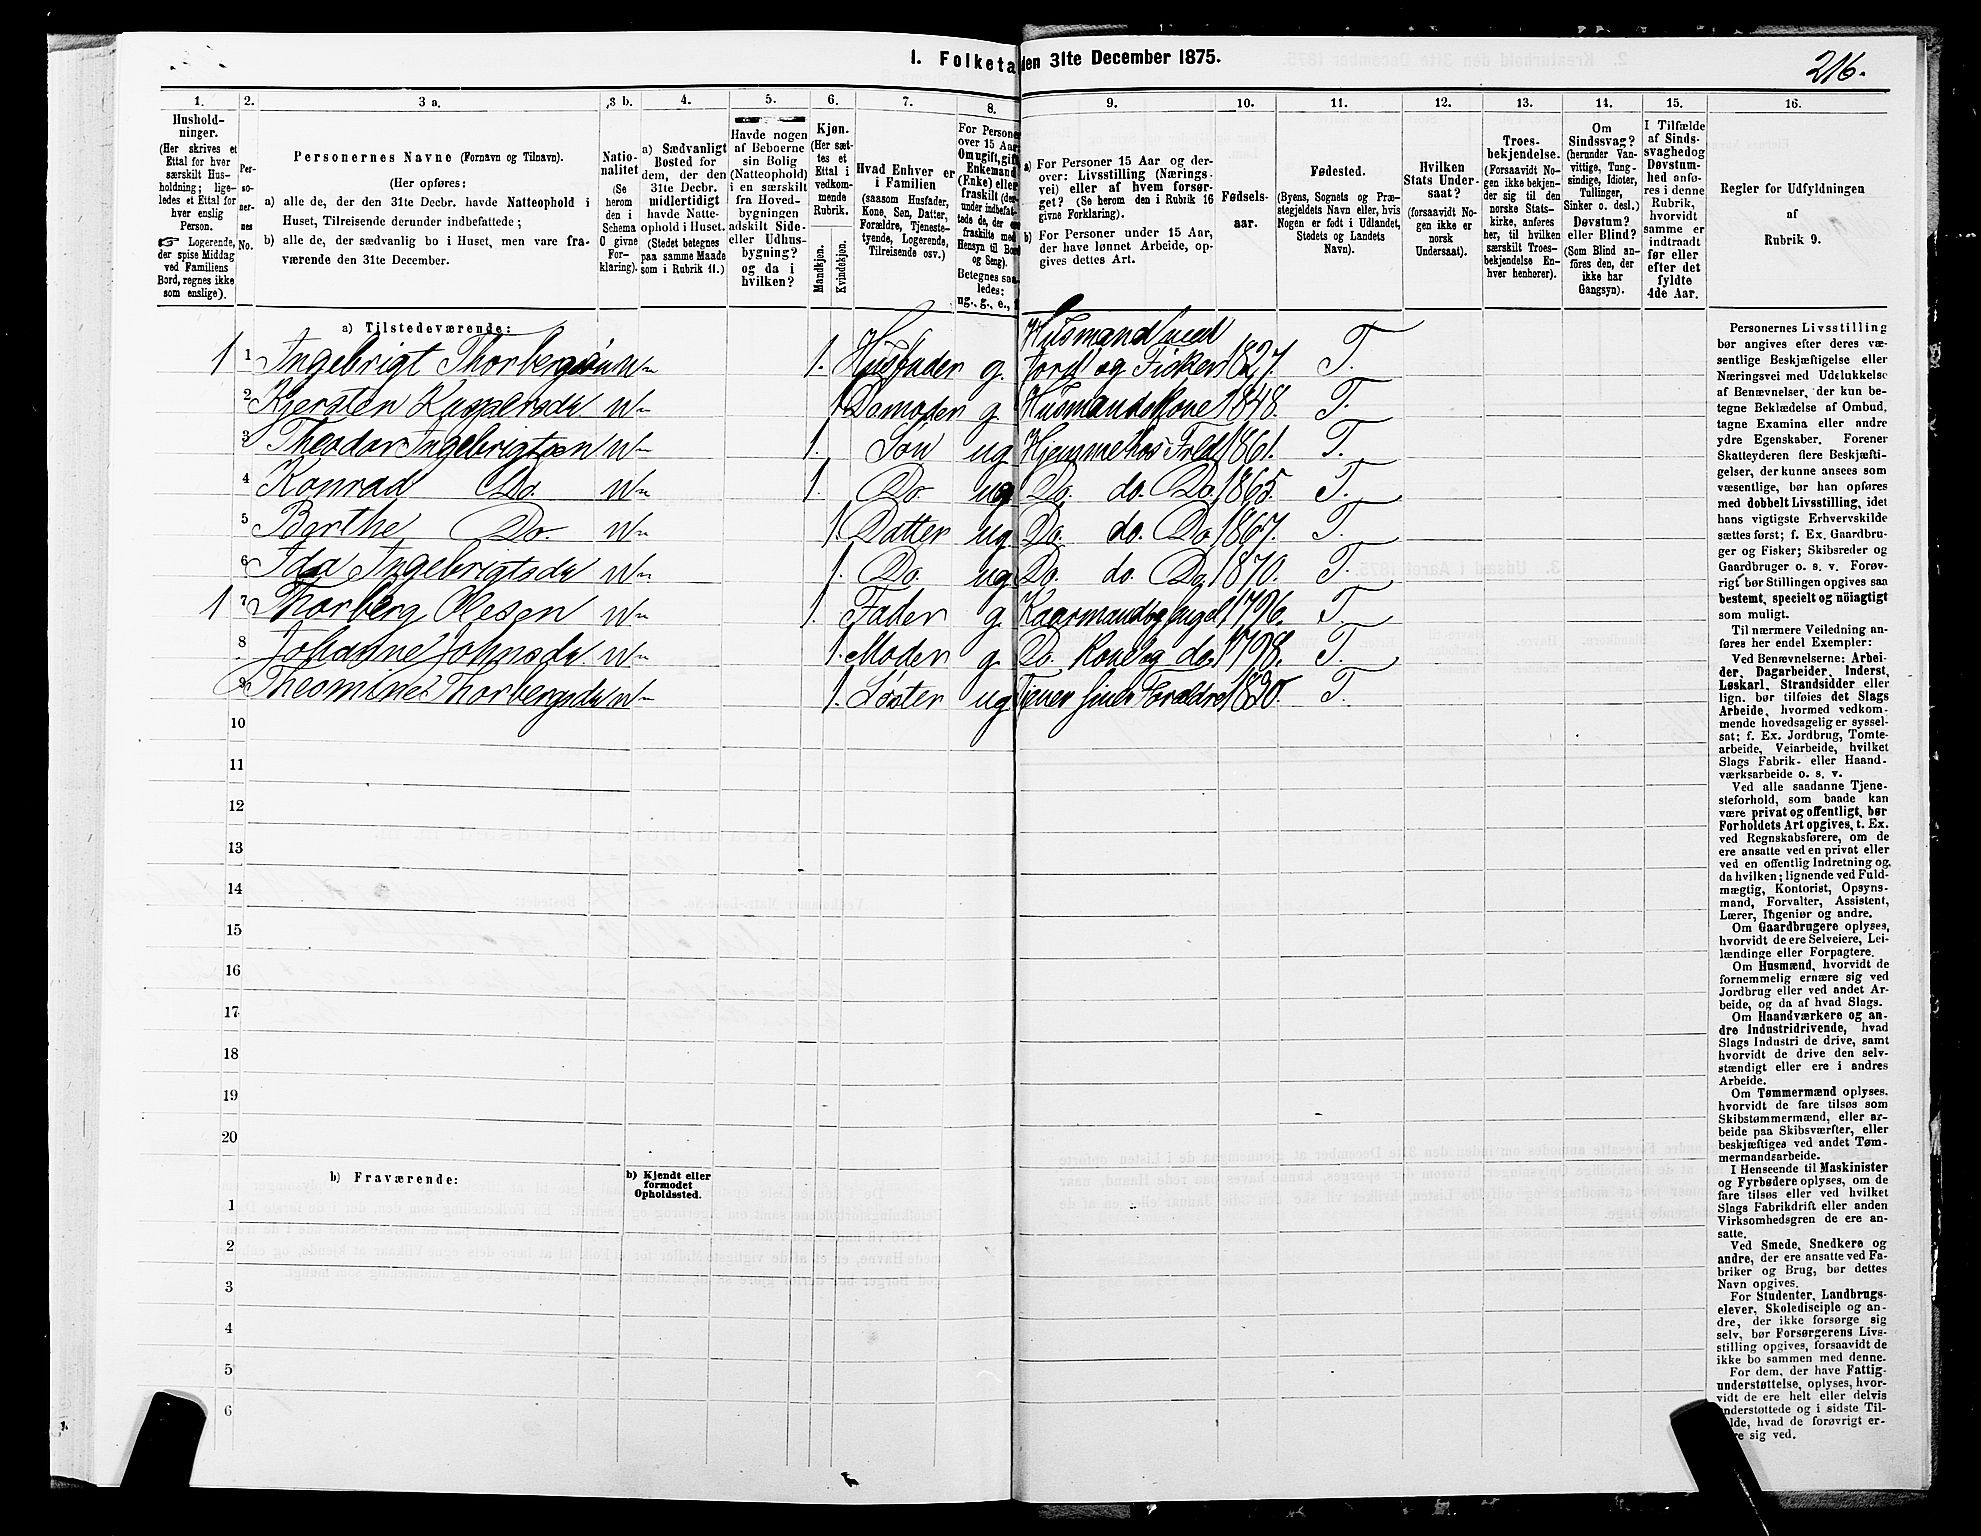 216.
I. Folketa den 31te December 1875.
1. 2. 3 a. 3 b. 4. 5. 6. 7. 8. 9. 10. 11. 12. 13. 14. 15. 16.
Hushold-
ninger.
(Her skrives et
Ettal for hver
særskilt Hus-
holdning; lige-
ledes et Ettal for
hver enslig
Person.
☞ Logerende,
der spise Middag
ved Familiens
Bord, regnes ikke
som enslige).
Per-
so-
ner-
nes
No.
Personernes Navne (Fornavn og Tilnavn).
(Her opføres:
a) alle de, der den 31te Decbr. havde Natteophold i
Huset, Tilreisende derunder indbefattede;
b) alle de, der sædvanlig bo i Huset, men vare fra-
værende den 31te December.
Natio-
nalitet
(Se
herom
den i
Schema
O givne
For-
klaring).
a) Sædvanligt
Bosted for
dem, der den
31te Decbr.
midlertidigt
havde Natte-
ophold i Huset.
(Stedet betegnes
paa samme Maade
som i Rubrik 11.)
Havde nogen
af Beboerne
sin Bolig
(Natteophold)
i en særskilt
fra Hoved-
bygningen
adskilt Side-
eller Udhus-
bygning?
og da i
hvilken?
Kjøn.
(Her sæt-
tes et
Ettal i
vedkom-
mende
Rubrik.
Mandkjøn.
Kvindekjøn.
Hvad Enhver er
i Familien
(saasom Husfader,
Kone, Søn, Datter,
Forældre, Tjeneste-
tyende, Logerende,
Tilreisende osv.)
For Persone
over 15 Aar,
Om ugift, gift
Enkemand
(Enke) eller
fraskilt (der-
under indbefat-
tede de, der ere
fraskilte med
Hensyn til Bord
og Seng).
Betegnes saa-
ledes:
ug., g., e.,
a) For Personer 15 Aar og der-
over: Livsstilling (Nærings-
vei) eller af hvem forsør-
get? (Se herom den i Rubrik 16
givne Forklaring).
b) For Personer under 15 Aar,
der have lønnet Arbeide, op-
gives dettes Art.
Fødsels-
aar.
Fødested.
(Byens, Sognets og Præ-
stegjeldets Navn eller, hvis
Nogen er født i Udlandet,
Stedets og Landets
Navn).
Hvilken
Stats Under-
saat?
(forsaavidt No-
gen ikke er
norsk
Undersaat).
Troes-
bekjendelse.
(Forsaavidt No-
gen ikke bekjen-
der sig til den
norske Stats-
kirke, anføres
her, til hvilken
særskilt Troes-
bekjendelse En-
hver henhører).
Om
Sindssvag?
(herunder Van-
vittige, Tung-
sindige, Idioter,
Tullinger,
Sinker o. desl.)
Døvstum?
eller Blind?
(Som Blind an-
føres den, der
ikke har
Gangsyn).
I Tilfælde
af Sinds-
svaghed og
Døvstum-
hed anfø-
res i denne
Rubrik,
hvorvidt
samme er
indtraadt
før eller
efter det
fyldte
4de Aar.
Regler for Udfyldningen
af
Rubrik 9.
a) Tilstedeværende:
1 1 Ingebrigt Thorbergsøn n 1. Husfader g. Husmand med Jord og Fisker 1827 T.
2 Kjersten Kaspersdr n 1 Do moder g. Husmandskone 1848. T.
3 Theodor Ingebrigtsøn n 1. Søn ug Hjemme hos Fald 1861. T.
4 Konrad Do. n 1. Do ug Do. do. Do. 1865. T.
5 Berthe Do. n 1. Datter ug. Do. do. Do 1867. T.
6 Ida Ingebrigtsdr n 1. Do. ug Do. do. Do 1870. T.
1 7 Thorberg Olesen n 1. Fader g. 1796. T.
8 Johanne Johnsdr n 1. Moder g. Do. Kone og do. 1798. T.
9 Thorbergsdr n 1. Søster ug Tjener sine Forældre 1830. T.
10
11
12
13
14
15
16
17
18
19
20
b) Fraværende:
b) Kjendt eller
formodet
Opholdssted.
1
2
3
4
5
6
Personernes Livsstilling
bør angives efter deres væ-
sentlige Beskjæftigelse eller
Næringsvei med Udelukkelse
af Benævnelser, der kun be-
tegne Beklædelse af Ombud,
tagne Examina eller andre
ydre Egenskaber. Forener
Skatteyderen flere Beskjæfti-
gelser, der kunne ansees som
væsentlige, bør han opføres
med dobbelt Livsstilling, idet
hans vigtigste Erhvervskilde
sættes først; f. Ex. Gaardbru-
ger og Fisker; Skibsreder og
Gaardbruger o. s. v. Forøv-
rigt bør Stillingen opgives saa
bestemt, specielt og nöiagtigt
som muligt.
Til nærmere Veiledning an-
føres her endel Exempler:
Ved Benævnelserne: Arbei-
der, Dagarbeider, Inderst,
Løskarl, Strandsidder eller
lign. bør tilføies det Slags
Arbeide, hvormed vedkom-
mende hovedsagelig er syssel-
sat; f. Ex. Jordbrug, Tomte-
arbeide, Veiarbeide, hvilket
Slags Fabrik- eller Haand-
værksarbeide o. s. v.
Ved alle saadanne Tjene-
steforhold, som baade kan
være privat og offentligt, bør
Forholdets Art opgives, t. Ex.
ved Regnskabsførere, om de
ere ansatte ved en privat eller
ved en offentlig Indretning og
da hvilken; lignende ved Fuld-
mægtig, Kontorist, Opsyns-
mand, Forvalter, Assistent,
Lærer, Ingeniør og andre.
Om Gaardbrugere oplyses,
hvorvidt de ere Selveiere, Lei-
lændinge eller Forpagtere.
Om Husmænd, hvorvidt de
fornemmelig ernære sig ved
Jordbrug eller ved andet Ar-
beide, og da af hvad Slags.
Om Haandværkere og an-
dre Industridrivende, hvad
Slags Industri de drive, samt
hvorvidt de drive den selv-
stændigt eller ere i andres
Arbeide.
Om Tømmermænd oplyses,
hvorvidt de fare tilsøs som
Skibstømmermænd, eller ar-
beide paa Skibsværfter, eller
beskjæftiges ved andet Tøm-
mermandsarbeide.
I Henseende til Maskinister
og Fyrbødere oplyses, om de
fare tilsøs eller ved hvilket
Slags Fabrikdrift eller anden
Virksomhedsgren de ere an-
satte.
Ved Smede, Snedkere og
andre, der ere ansatte ved Fa-
briker og Brug, bør dettes
Navn opgives.
For Studenter, Landbrugs-
elever, Skoledisciple og an-
dre, der ikke forsørge sig
selv, bør Forsørgerens Livs-
stilling opgives, forsaavidt de
ikke bo sammen med denne.
For dem, der have Fattig-
understøttelse, oplyses, hvor-
vidt de ere helt eller delvis
understøttede og i sidste Til-
lde, hvad de forøvrigt er-
re sig ved.